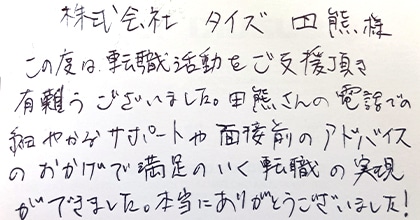 株式会社 タイズ 田熊様
この度は、転職活動をご支援頂き
有難うございました。田熊さんの電話での
細やかなサポートや面接前のアドバイス
のおかげで満足のいく転職の実現
ができました。本当にありがとうございました!